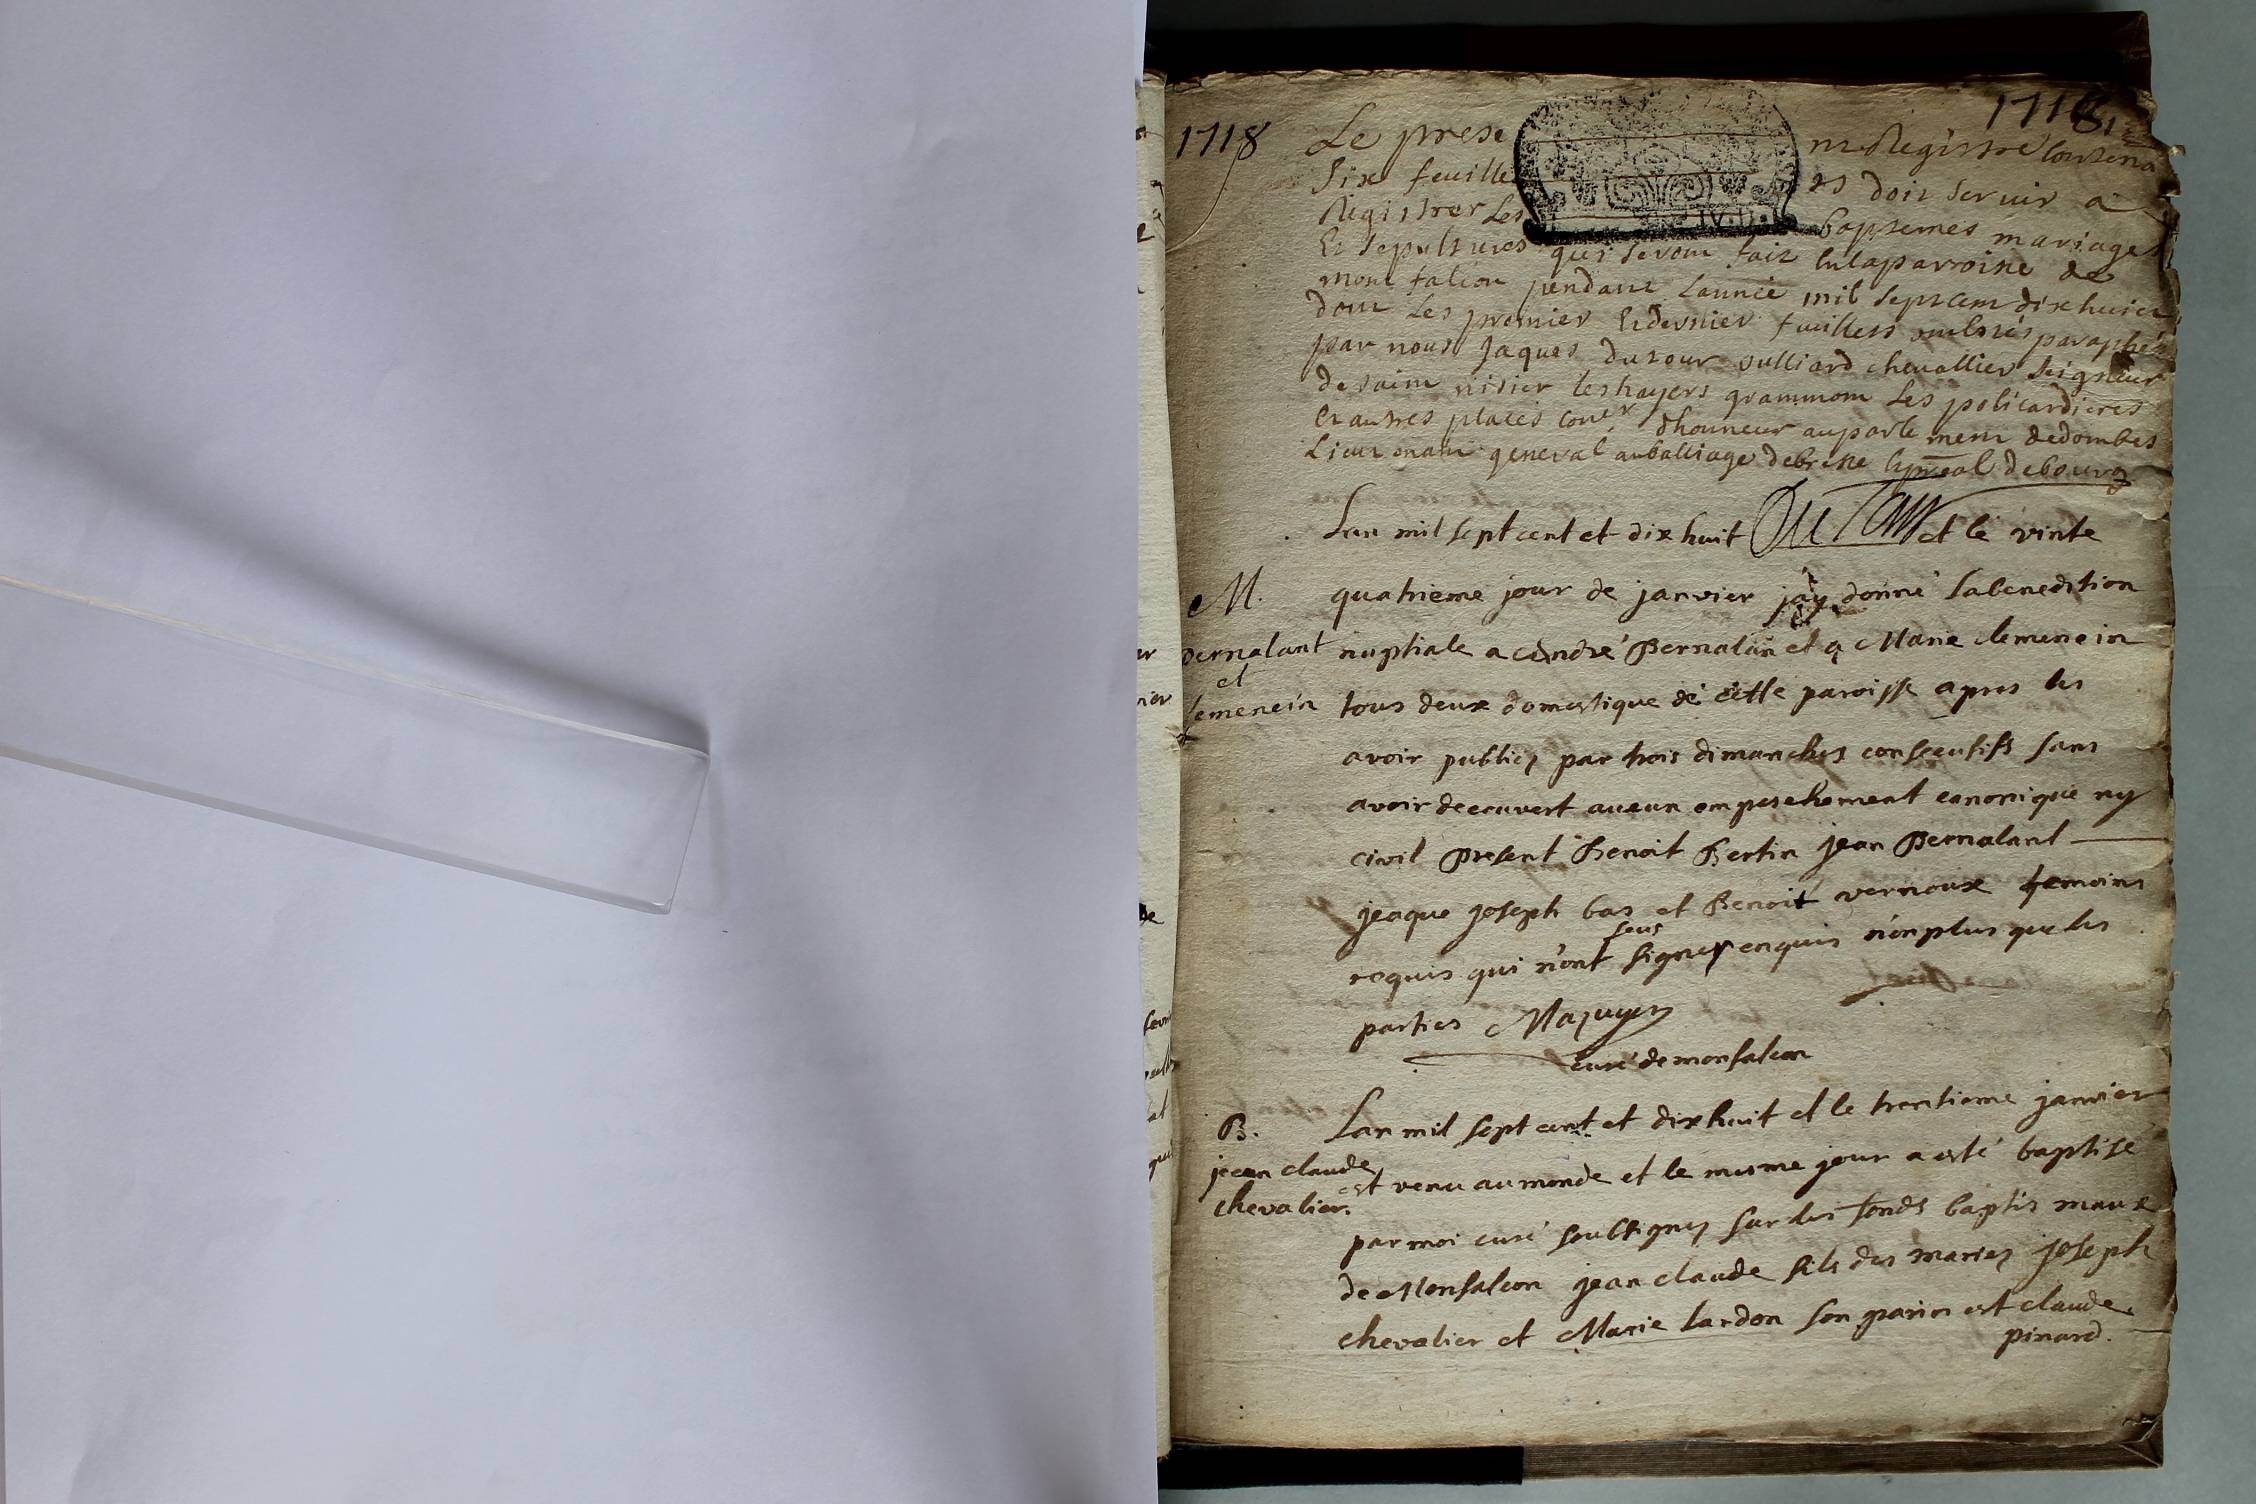 1718
1718
Le present Registre contena
Six feuilles doit servir a
Registrer Les baptemes mariages
Et sepultures qui seront fait en la parroisse de
montfalcon pendant Lannee mil sept cent dix huict
dont Les premier Et dernier feuillets paraphés
par nous Jaques dutour vulliard chevallier Seigneur
de saint nisier les hayers grammont Les policardieres
Et autres places Coner dhonneur au parlement de dombes
Lieutenant general au balliage de bresse de bourg
DuTour
Lan mil sept cent et dix huit et le vinte
M. quatrieme jour de janvier jay donné la benedition
Bernalant nuptiale a andré Bernalan et a Marie clemenein
et
clemenein tous deux domestique de cette paroisse apres les
avoir publiez par trois dimanches consecutifs sans
avoir decouvert aucun empeschement canonique ny
civil present Benoit Bertin jean Bernalant
jeaque joseph bas et Benoit vernoux temoins
requis qui n'ont sceus signer enquis n'on plus que les
parties Mazuyer
curé de monfalcon
B. Lan mil sept cent et dix huit et le trentieme janvier
jean claude est venu au monde et le mesme jour a esté baptisé
chevalier.
par moi curé soubsignez sur les fonds baptis maux
de Monfalcon jean claude fils des mariez joseph
chevalier et Marie Lardon son parin est claude
pinard.